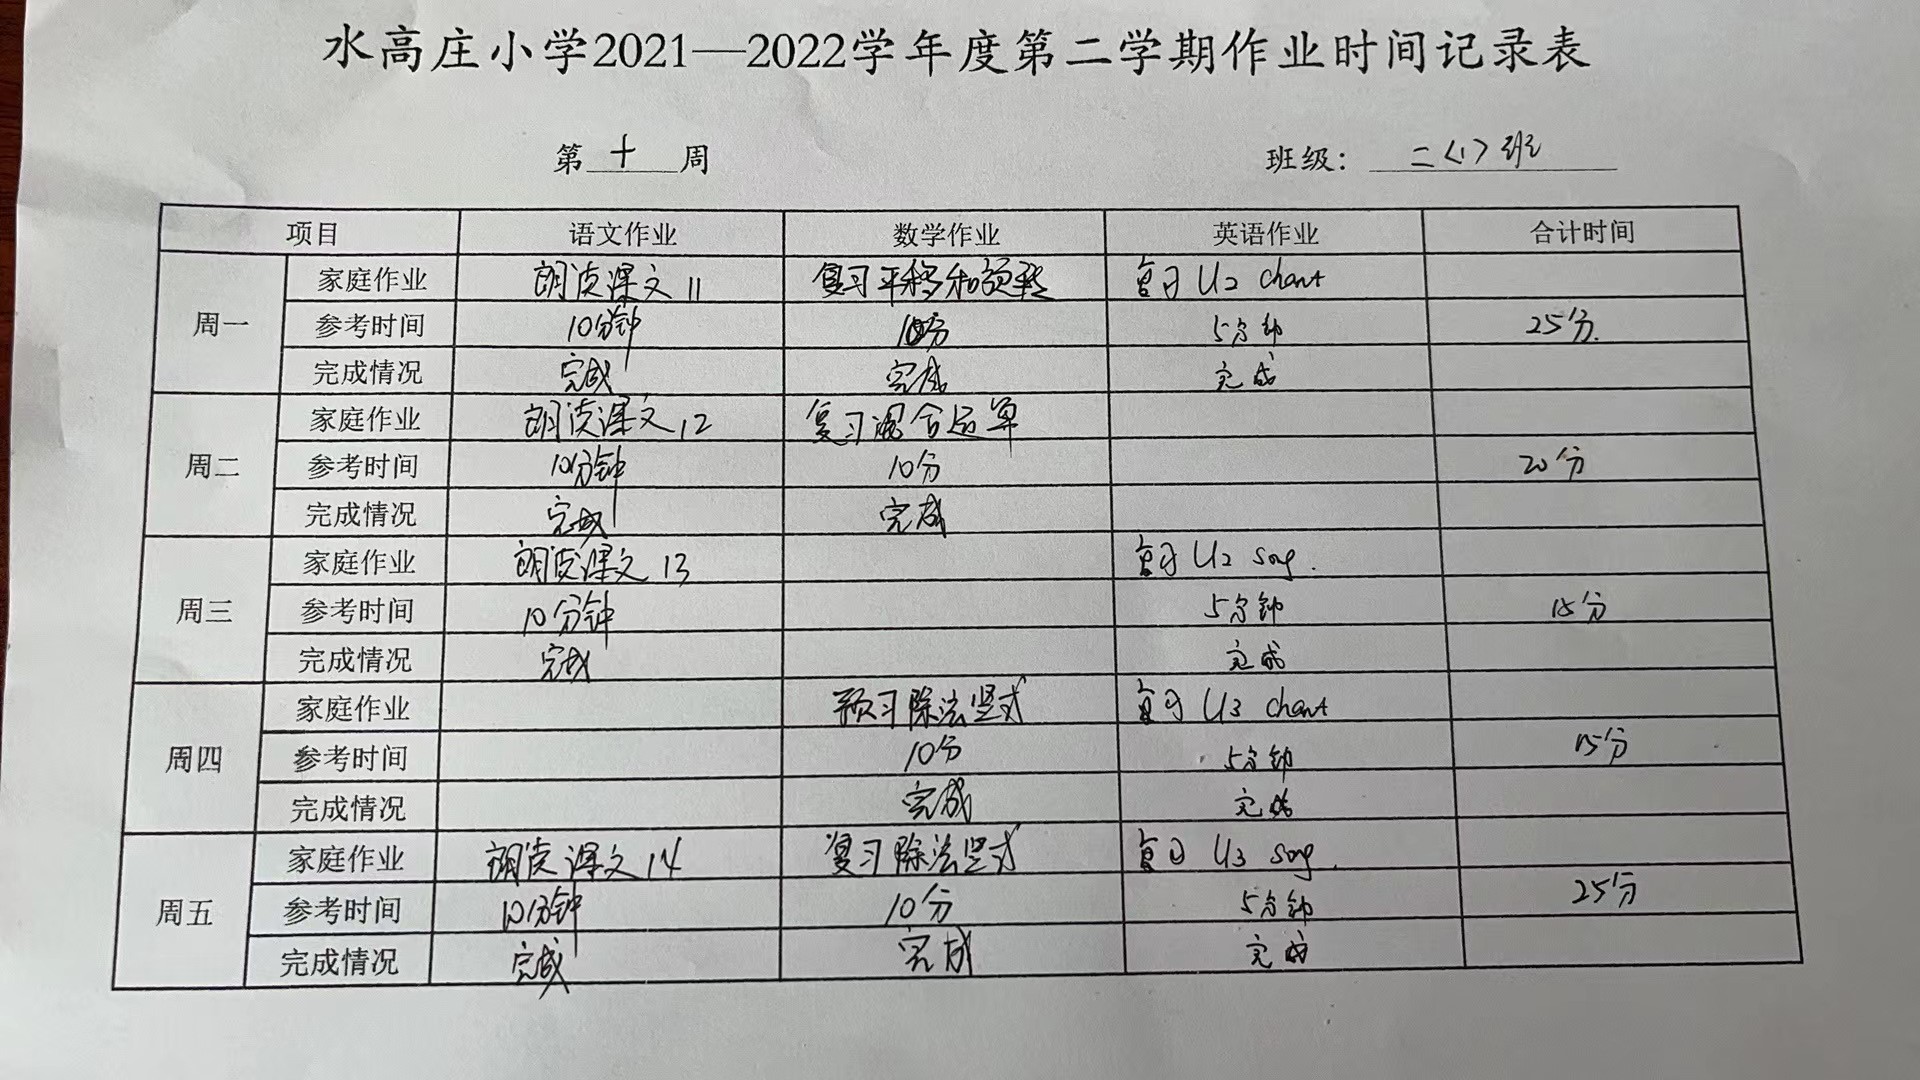 水高庄小学2021—2022学年度第二学期作业时间记录表
第 十 周 班级: 二<1>班
项目 语文作业 数学作业 英语作业 合计时间
周一 家庭作业 朗读课文11 复习平移和旋转 复习 U2 chant
参考时间 10分钟 10分 5分钟 25分.
完成情况 完成 完成 完成
周二 家庭作业 朗读课文12 复习混合运算
参考时间 10分钟 10分 20分
完成情况 完成 完成
周三 家庭作业 朗读课文13 复习 U2 song.
参考时间 10分钟 5分钟 15分
完成情况 完成 完成
周四 家庭作业 预习除法竖式 复习 U3 chant
参考时间 10分 5分钟 15分
完成情况 完成 完成
周五 家庭作业 朗读课文14 复习除法竖式 复习 U3 song.
参考时间 10分钟 10分 5分钟 25分
完成情况 完成 完成 完成